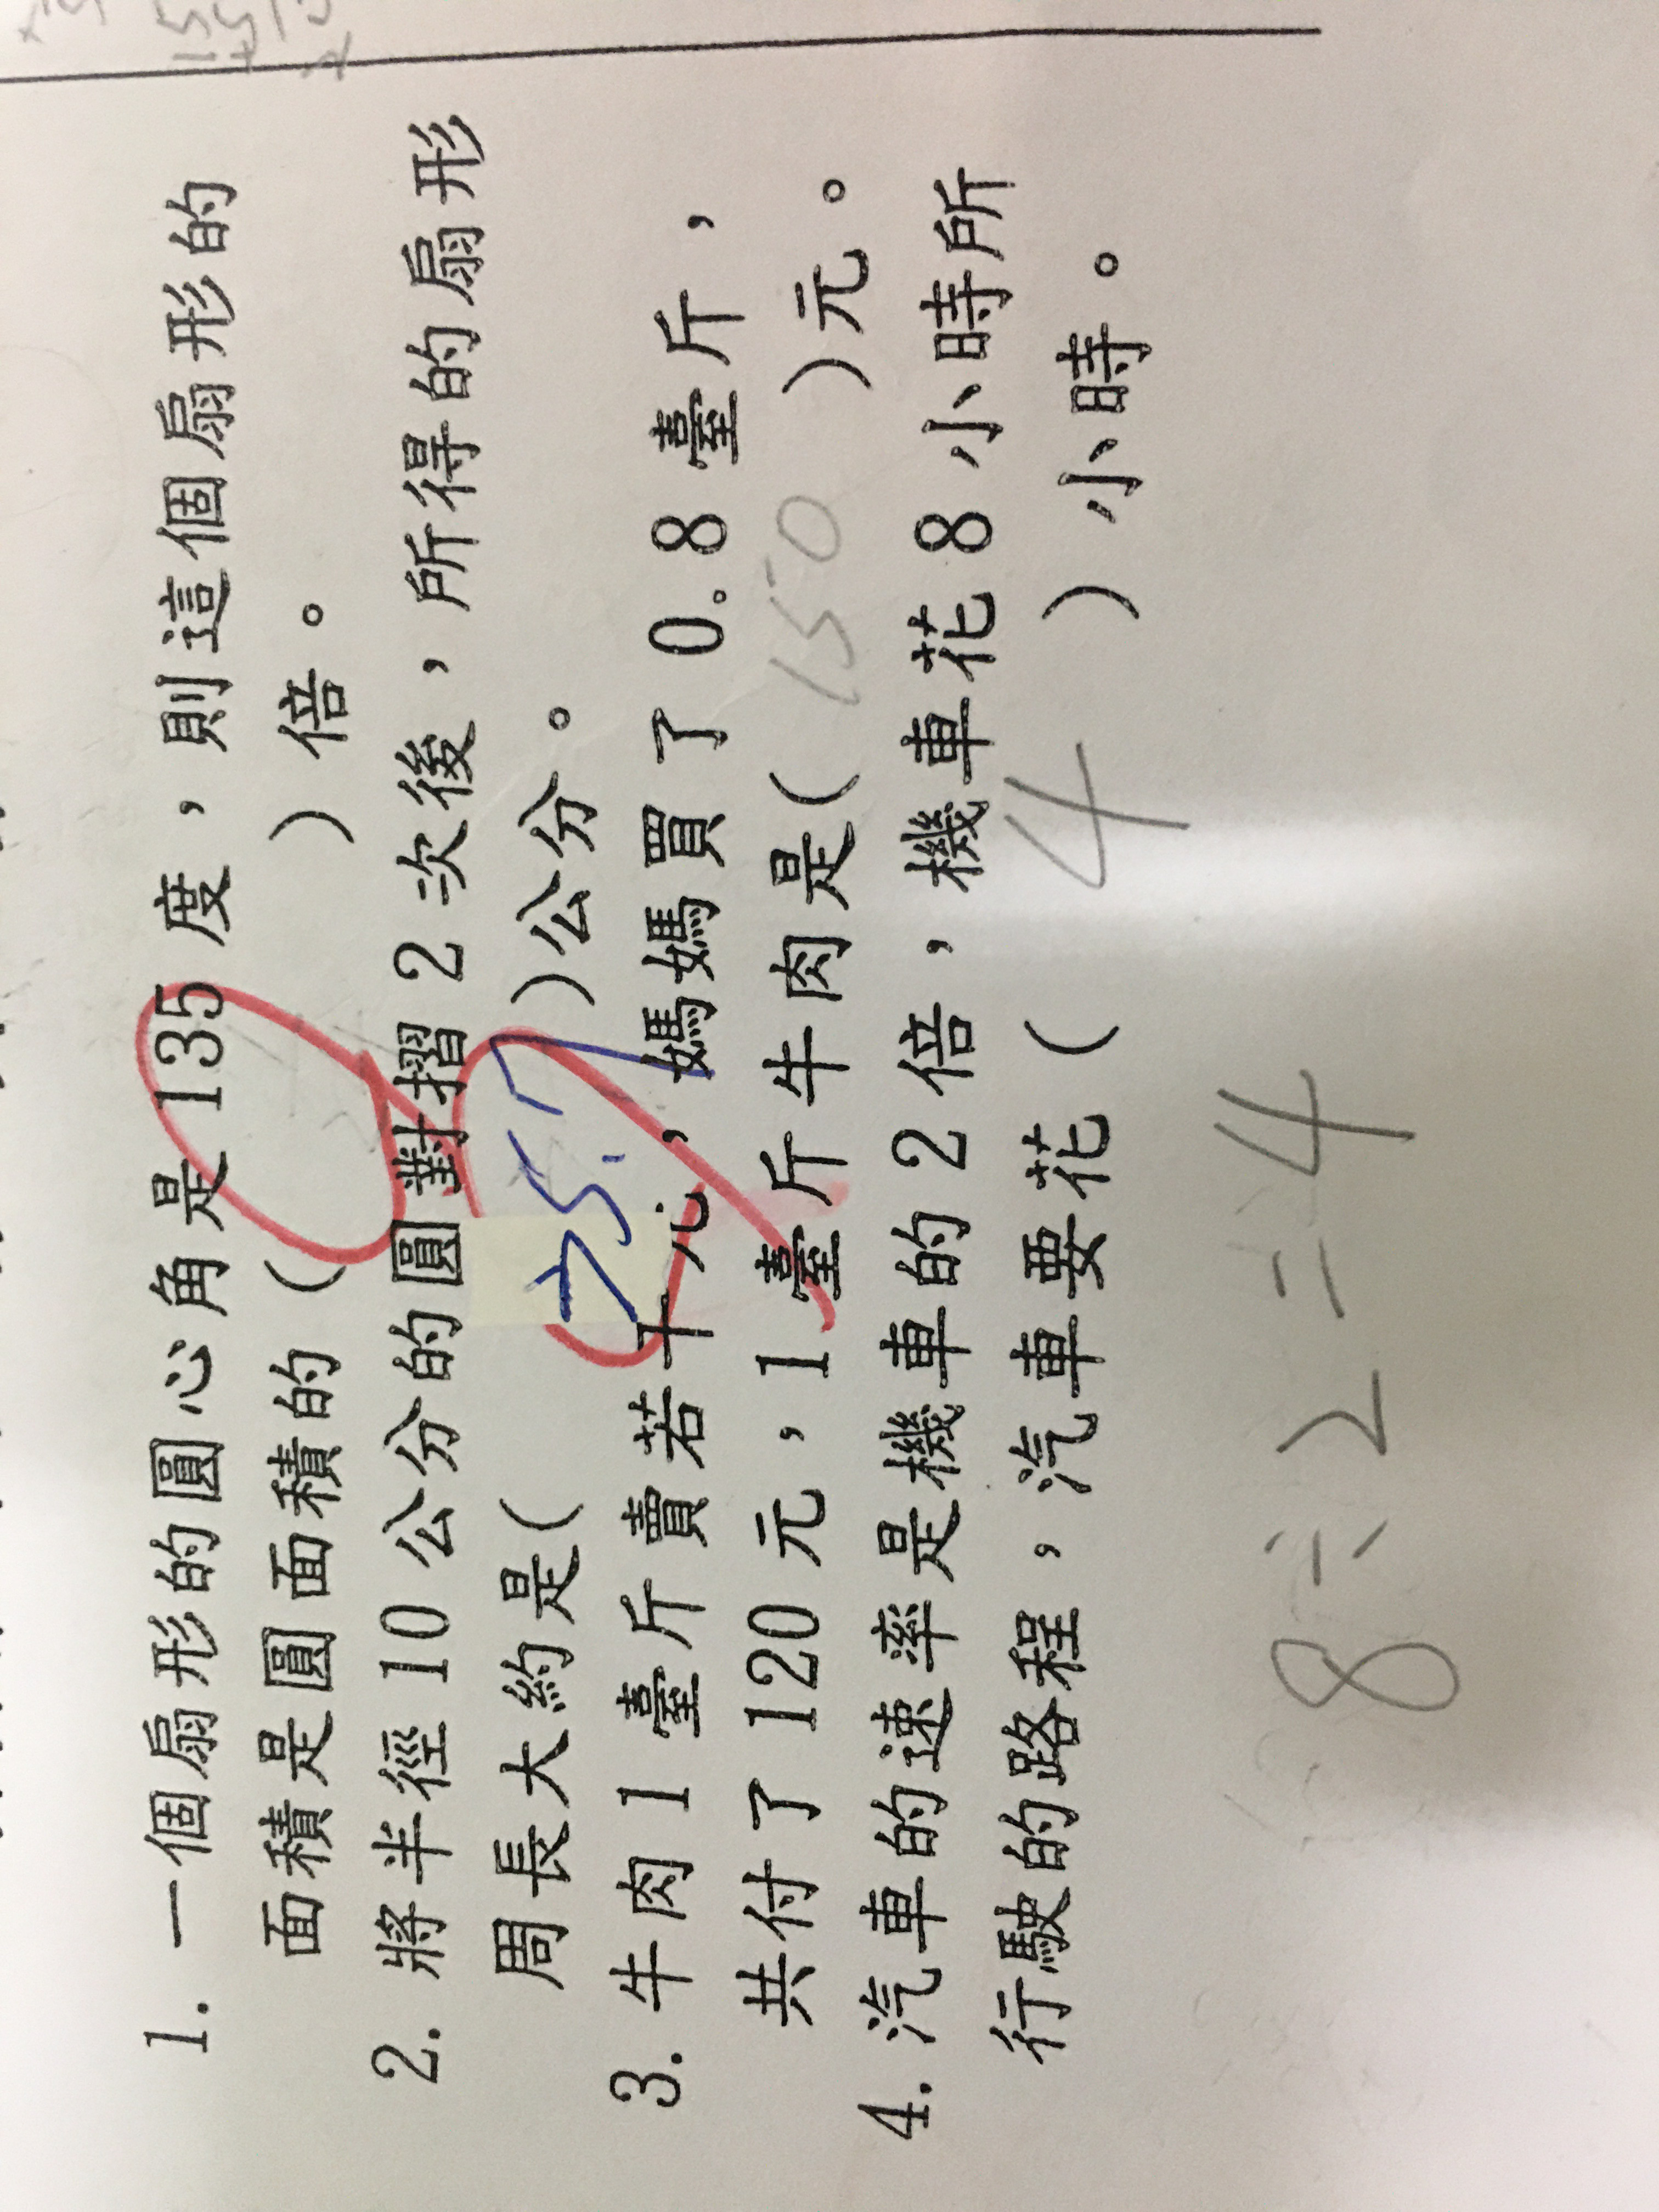 1. 一個扇形的圓心角是135度，則這個扇形的
面積是圓面積的（　　）倍。
2. 將半徑10公分的圓對摺2次後，所得的扇形
周長大約是(　25.7　)公分。
3. 牛肉1臺斤賣若干元，媽媽買了0.8臺斤，
共付了120元，1臺斤牛肉是(　150　)元。
4. 汽車的速率是機車的2倍，機車花8小時所
行駛的路程，汽車要花（　4　）小時。
8÷2=4